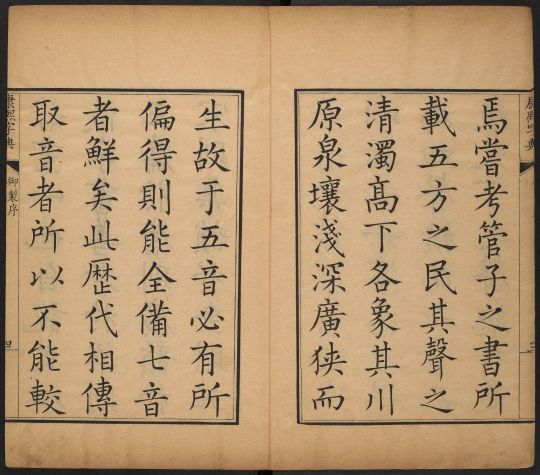 康熙字典
三
焉嘗考管子之書所
載五方之民其聲之
清濁髙下各象其川
原泉壤淺深廣狹而
生故于五音必有所
偏得則能全備七音
者鮮矣此歴代相傳
取音者所以不能較
康熙字典
御製序
四